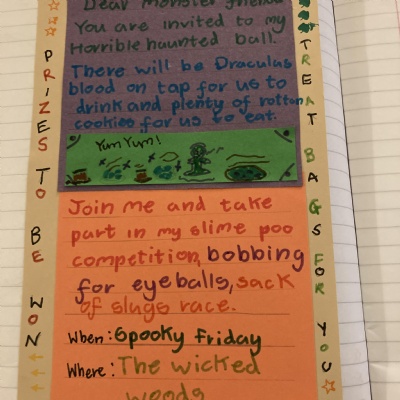 Dear monster friend
You are invited to my
Horrible haunted ball.
There will be Draculas
blood on tap for us to
drink and plenty of rotton
cookies for us to eat.
Yum Yum!
Join me and take
part in my slime poo
competition, bobbing
for eyeballs, sack
of slugs race.
When: Spooky friday
Where: The wicked
woods
PRIZES TO BE WON
TREAT BAGS FOR YOU